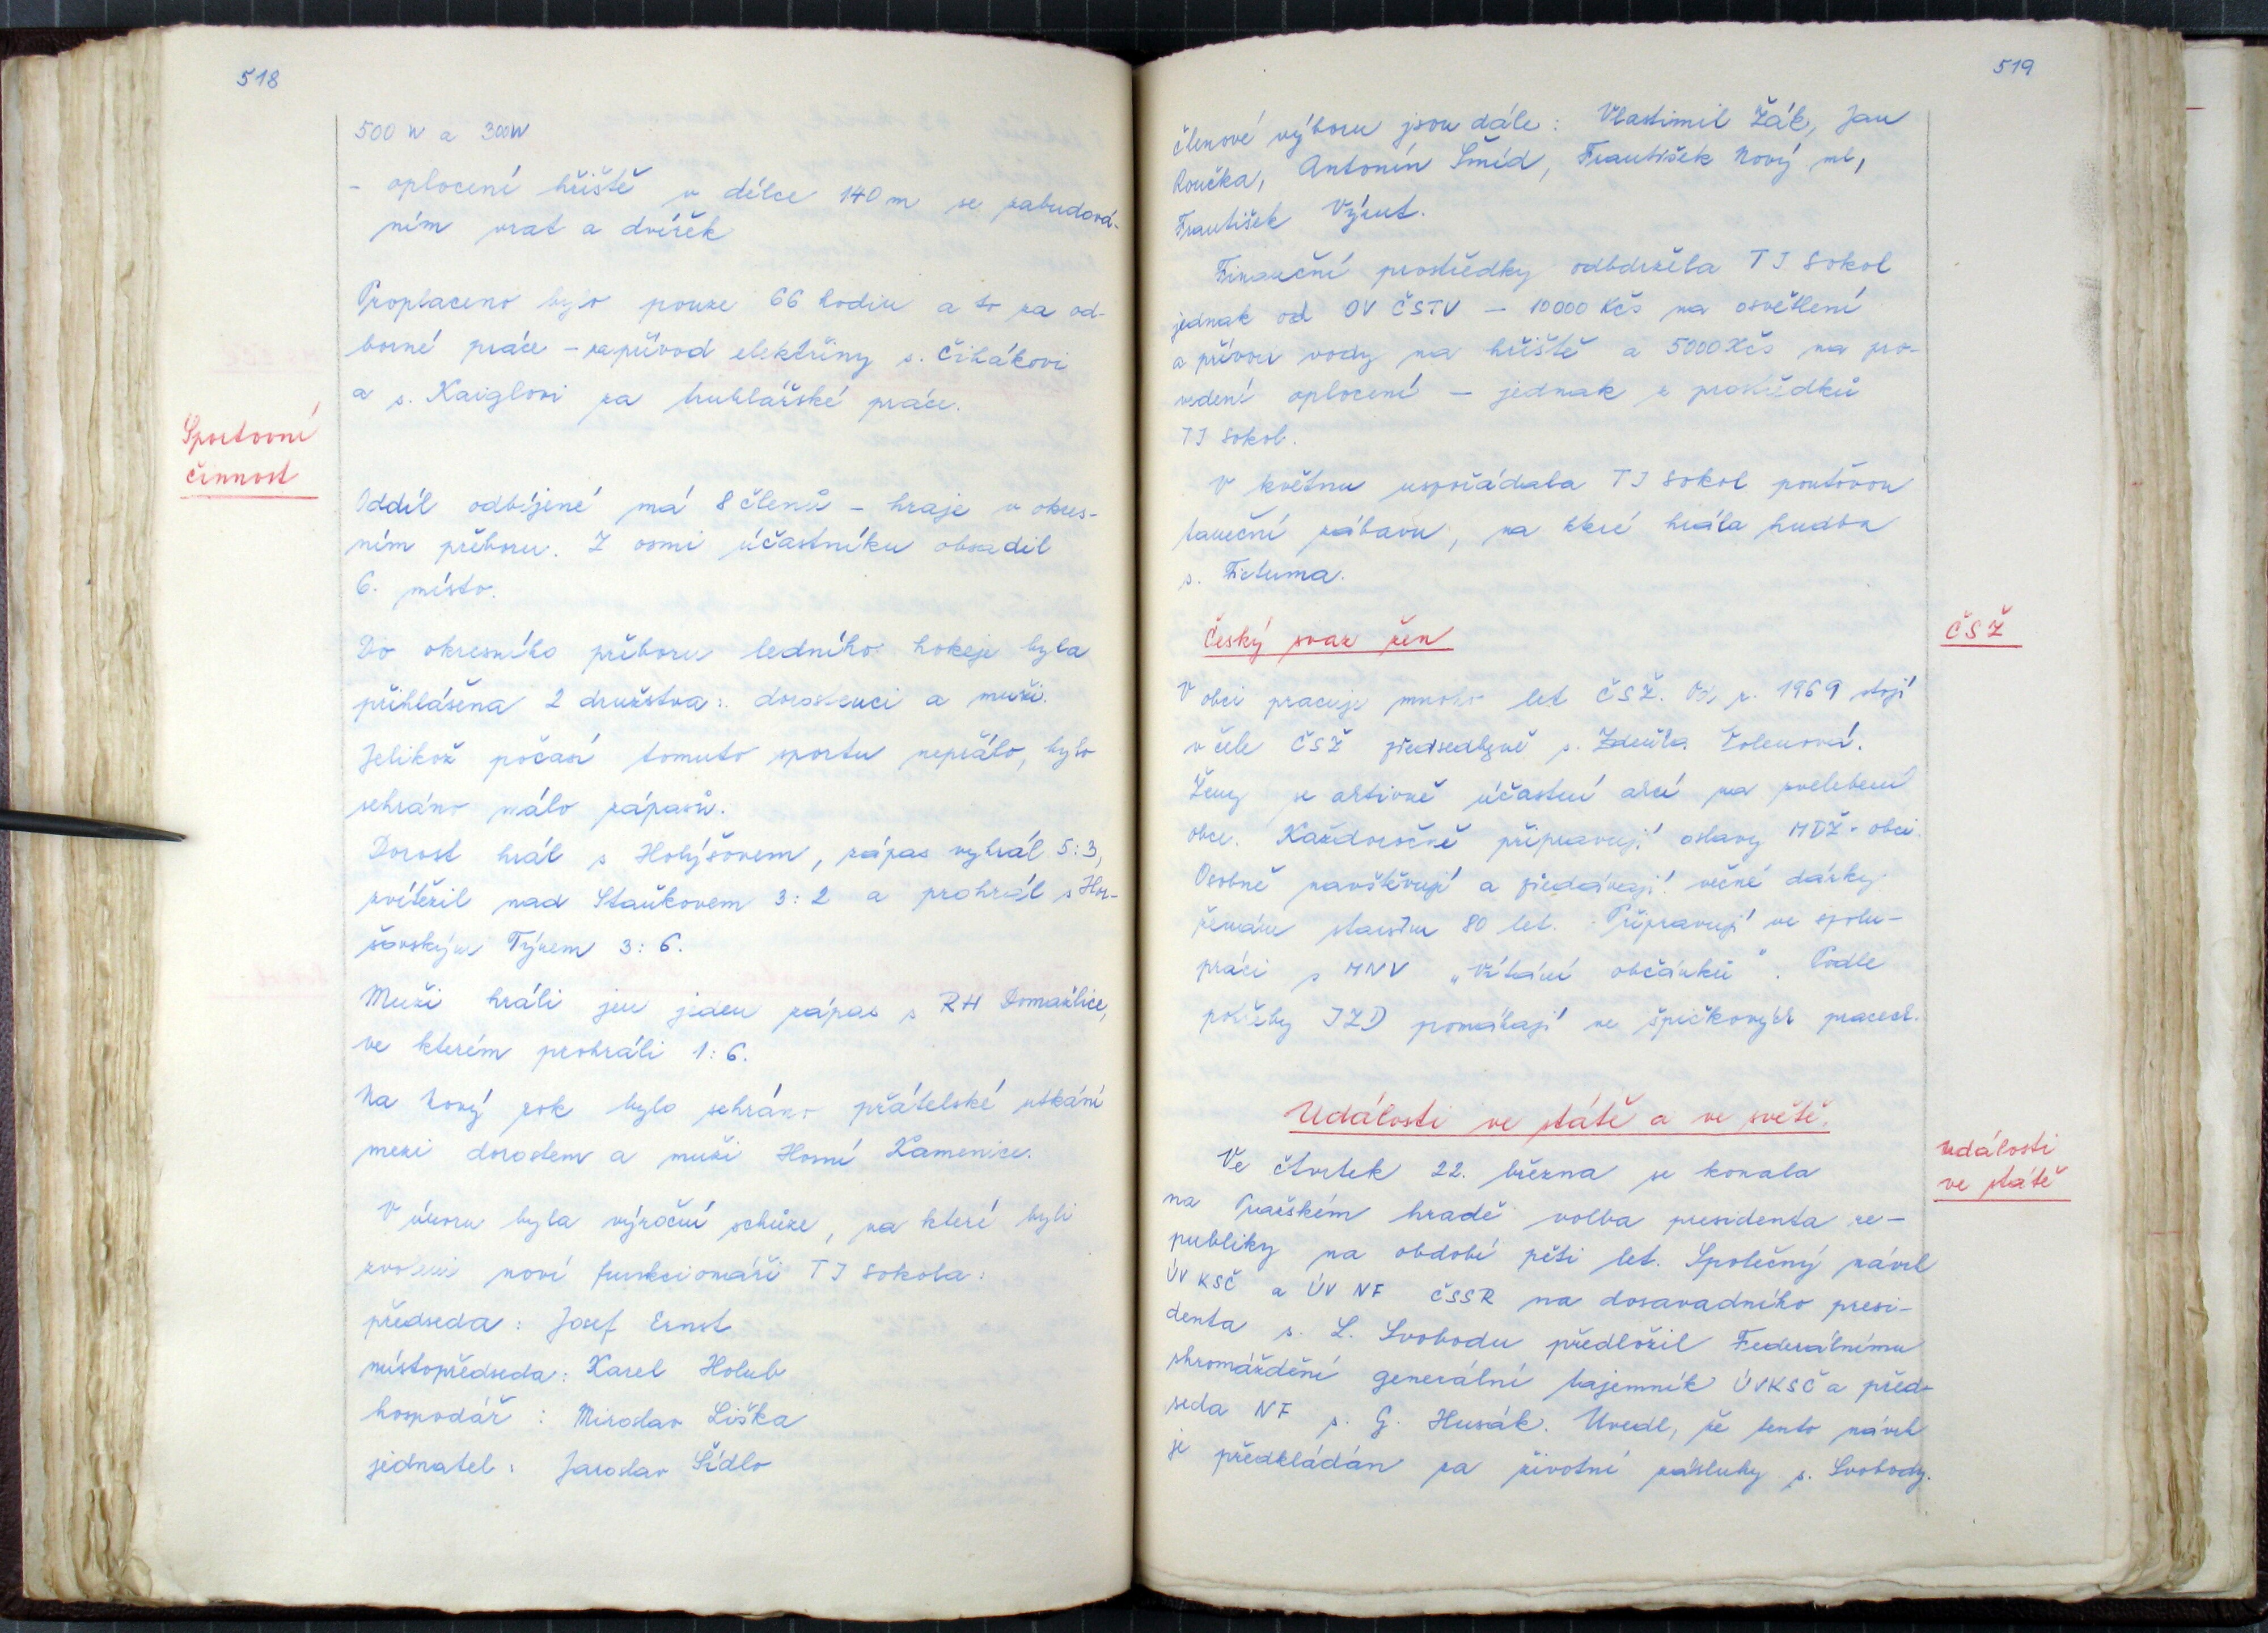 518
500 W a 300W
- oplocení hřiště v délce 140 m se zabudová-
ním vrat a dvířek
Proplaceno bylo pouze 66 hodin a to za od-
borné práce - za přívod elektřiny s. Čihákovi
a s. Kaiglovi za truhlářské práce.
Sportovní
činnost
Oddíl odbíjené má 8 členů - hraje v okres-
ním přeboru. Z osmi účastníku obsadil
6. místo.
Do okresního přeboru ledního hokeje byla
přihlášena 2 družstva: dorostenci a muži.
Jelikož počasí tomuto sportu nepřálo, bylo
sehráno málo zápasů.
Dorost hrál s Holýšovem, zápas vyhrál 5:3,
zvítězil nad Staňkovem 3:2 a prohrál s Hor-
šovským Týnem 3:6.
Muži hráli jen jeden zápas s RH Domažlice,
ve kterém prohráli 1:6.
Na Nový rok bylo sehráno přátelské utkání
mezi dorostem a muži Horní Kamenice.
V únoru byla výroční schůze, na které byli
zvoleni noví funkcionáři TJ Sokola:
předseda: Josef Ernst
místopředseda: Karel Holub
hospodář: Miroslav Liška
jednatel: Jaroslav Šídlo
519
Členové výboru jsou dále: Vlastimil Žák, Jan
Roučka, Antonín Šmíd, František Nový ml,
František Výrut.
Finanční prostředky odbdržela TJ Sokol
jednak od OV ČSTV - 10000 Kčs na osvětlení
a přívod vody na hřiště a 5000 Kčs na pro-
vedení oplocení - jednak z prostředků
TJ Sokol.
V květnu uspořádala TJ Sokol pouťovou
taneční zábavu, na které hrála hudba
s. Fictuma.
Český svaz žen
ČSŽ
V obci pracuje mnoho let ČSŽ. Od r. 1969 stojí
v čele ČSŽ předsedkyně s. Zdeňka
Ženy se aktivně účastní akcí na zvelebení
obce. Každoročně připravují oslavy MDŽ v obci.
Osobně navštěvují a předávají věčné dárky
ženám starším 80 let. Připravují ve spolu-
práci s MNV „Vítání občánků". Podle
potřeby JZD pomáhají ve špičkových pracech.
Události ve státě a ve světě.
Události
ve státě
Ve čtvrtek 22. března se konala
na Pražském hradě volba presidenta re-
publiky na období pěti let. Společný návrh
ÚV KSČ a ÚV NF ČSSR na dosavadního presi-
denta s. L. Svobodu předložil Federálnímu
shromáždění generální tajemník ÚV KSČ a před-
seda NF s. G. Husák. Uvedl, že tento návrh
je předkládán za životní zásluhy s. Svobody.